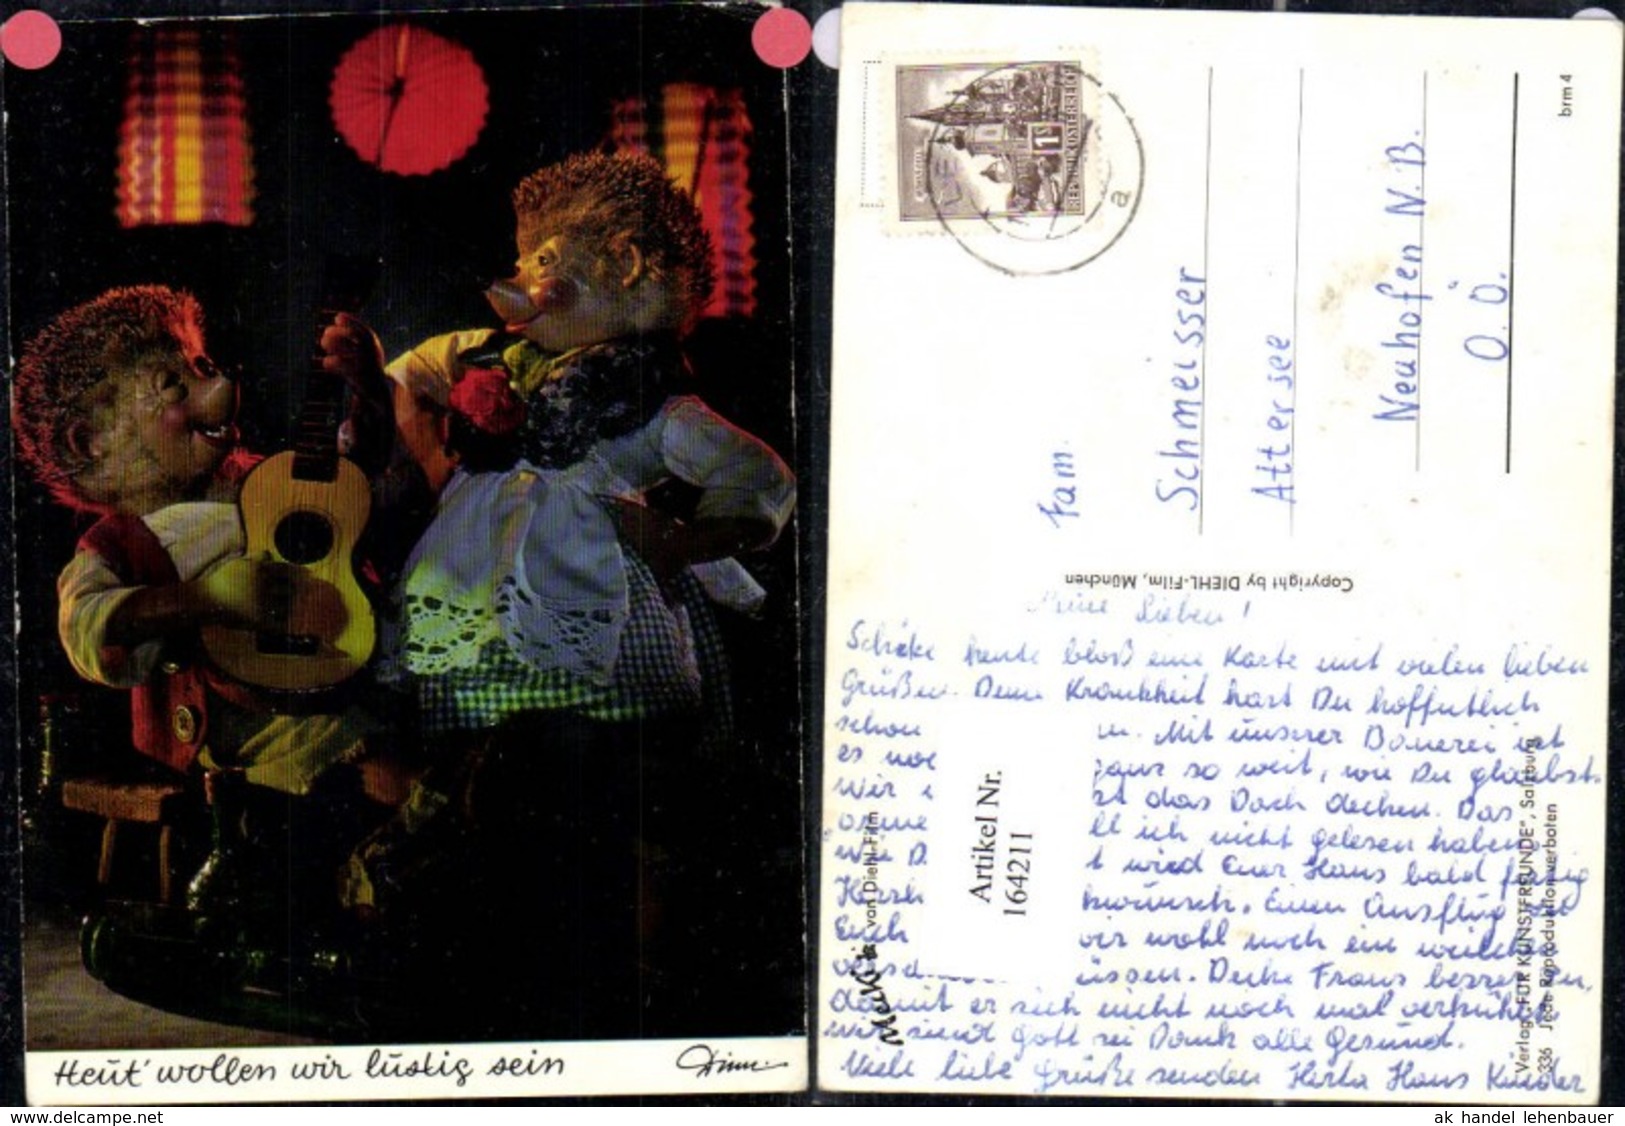 Heut' wollen wir lustig sein
Diehl
REPUBLIK ÖSTERREICH
1 S
a
Fam.
Schmeisser
Attersee
Neuhofen N.B.
O.Ö.
brm 4
Copyright by DIEHL-Film, München
Meine Lieben!
Schicke heute bloß eine Karte mit vielen lieben
Grüßen. Deine Krankheit hast Du hoffentlich
schon n. Mit unserer Bauerei ist
es noc ganz so weit, wie Du glaubst.
Wir st das Dach decken. Das
arme ll ich nicht gelesen haben
wie D. t wird Euer Haus bald fertig
Herzli kwunsch. Einen Ausflug zu
Euch wir wohl noch ein weilchen
versch üssen. Decke Franz besser zu,
damit er sich nicht noch mal verkühlt.
wir sind Gott sei Dank alle Gesund.
Viele liebe Grüße senden Herta Hans Kinder
Artikel Nr.
164211
Mecki ★ van Diehl-Film
Verlag „FÜR KUNSTFREUNDE", Salzburg
336 Jede Reproduktion verboten
www.delcampe.net
ak_handel_lehenbauer